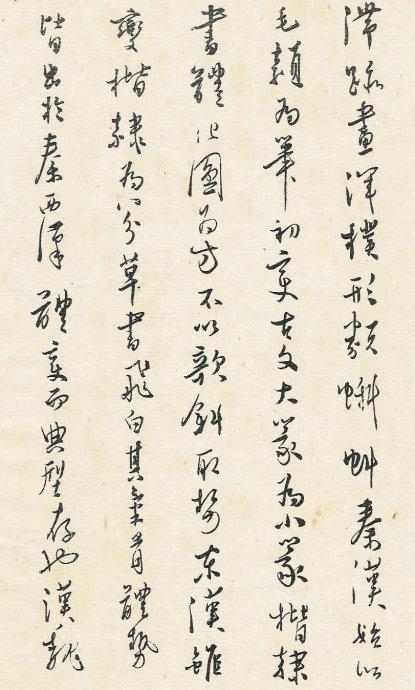 滯跡畫渾樸形類蝌蚪秦漢始以
毛穎為筆初變古文大篆為小篆楷隸
書體化圓為方不以欹斜取勢東漢雖
變楷隸為八分草書飛白其體勢
皆出於秦西漢體變而典型存也漢魏